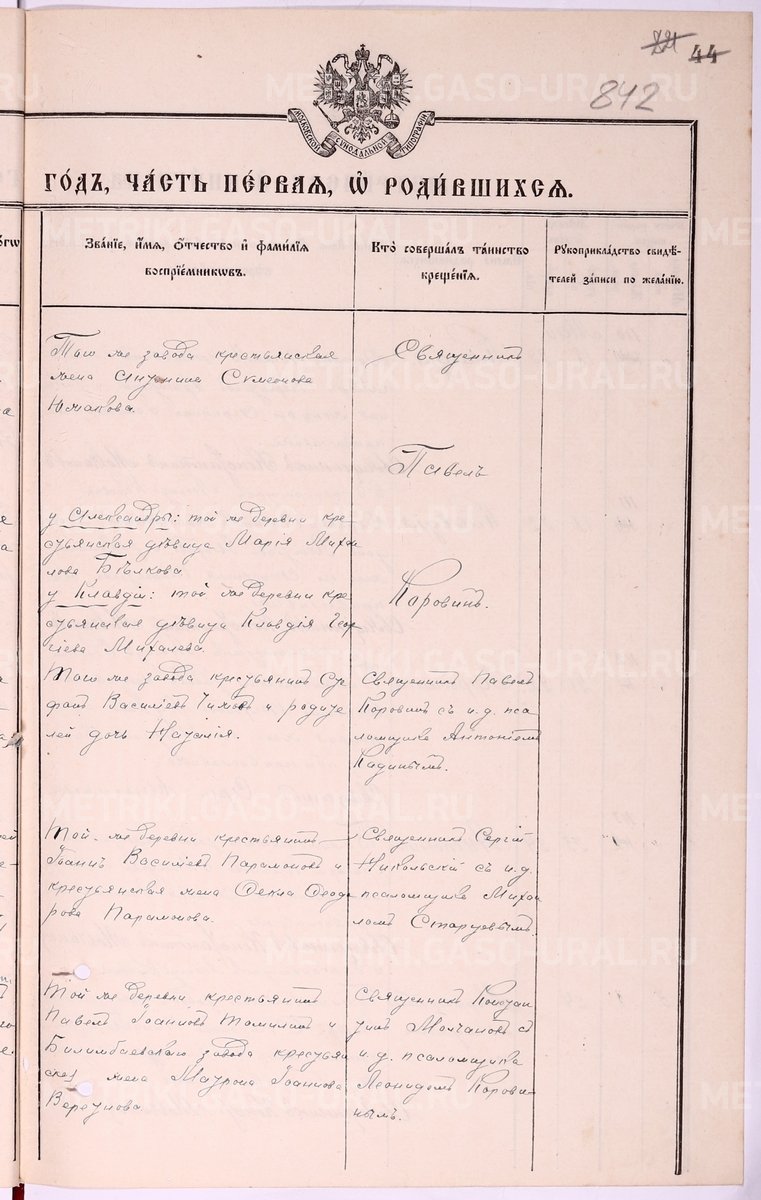 44
842
МОСКОВСКОЙ СѴНОДАЛЬНОЙ ТИПОГРАФІИ
го́дъ, ча́сть пе́рвая, ѡ҆ роди́вшихсѧ.
Зва́нїе, и҆́мѧ, ѻ҆́тчество и҆ фами́лїѧ
воспрїе́мникѡвъ.
Кто̀ соверша́лъ та́инство
креще́нїѧ.
Рꙋкоприкла́дство свидѣ́-
телей за́писи по жела́нїю.
Того же завода крестьянская
жена Симеонова
Юмакова.
Священникъ
Павелъ
Коровинъ.
у Александры: той же деревни кре-
стьянская дѣвица Марія Михаи
лова Бѣлкова
у Клавдіи: той же деревни кре
стьянская дѣвица Клавдія Геор
гіева Михалева.
Того же завода крестьянинъ Сте
фанъ Василіевъ Чижовъ и родите
лей дочь Наталія.
Священникъ Павелъ
Коровинъ съ и. д. пса
ломщика Антоніемъ
Кадинымъ.
Той-же деревни крестьянинъ
Іоаннъ Василіевъ Парамоновъ и
крестьянская жена Ѳекла Ѳеодо
рова Парамонова.
Священникъ Сергій
Никольскій съ и. д.
псаломщика Михаи
ломъ Старцевымъ.
Той же деревни крестьянинъ
Павелъ Іоанновъ Томиловъ и
Билимбаевскаго завода крестьян
ская жена Маврона Іоаннова
Веретнова
Священникъ Констан
тинъ Молчановъ съ
и. д. псаломщика
Леонидомъ Корови-
нымъ.
METRIKI.GASO-URAL.RU